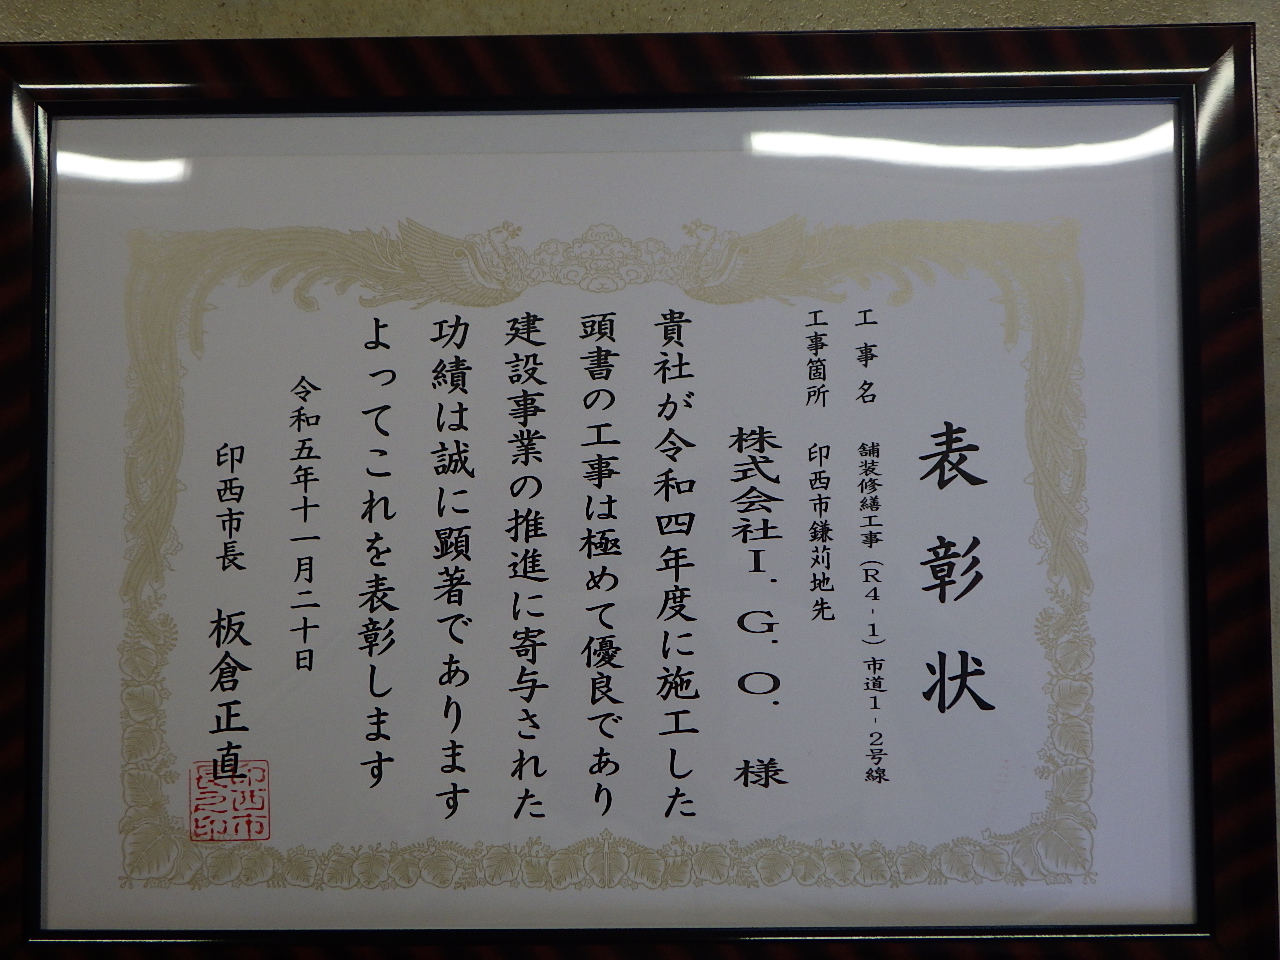 表彰状
工事名 舗装修繕工事(R4-1)市道1-2号線
工事箇所 印西市鎌苅地先
株式会社I.G.O. 様
貴社が令和四年度に施工した
頭書の工事は極めて優良であり
建設事業の推進に寄与された
功績は誠に顕著であります
よってこれを表彰します
令和五年十一月二十日
印西市長 板倉正直
印西市
長之印